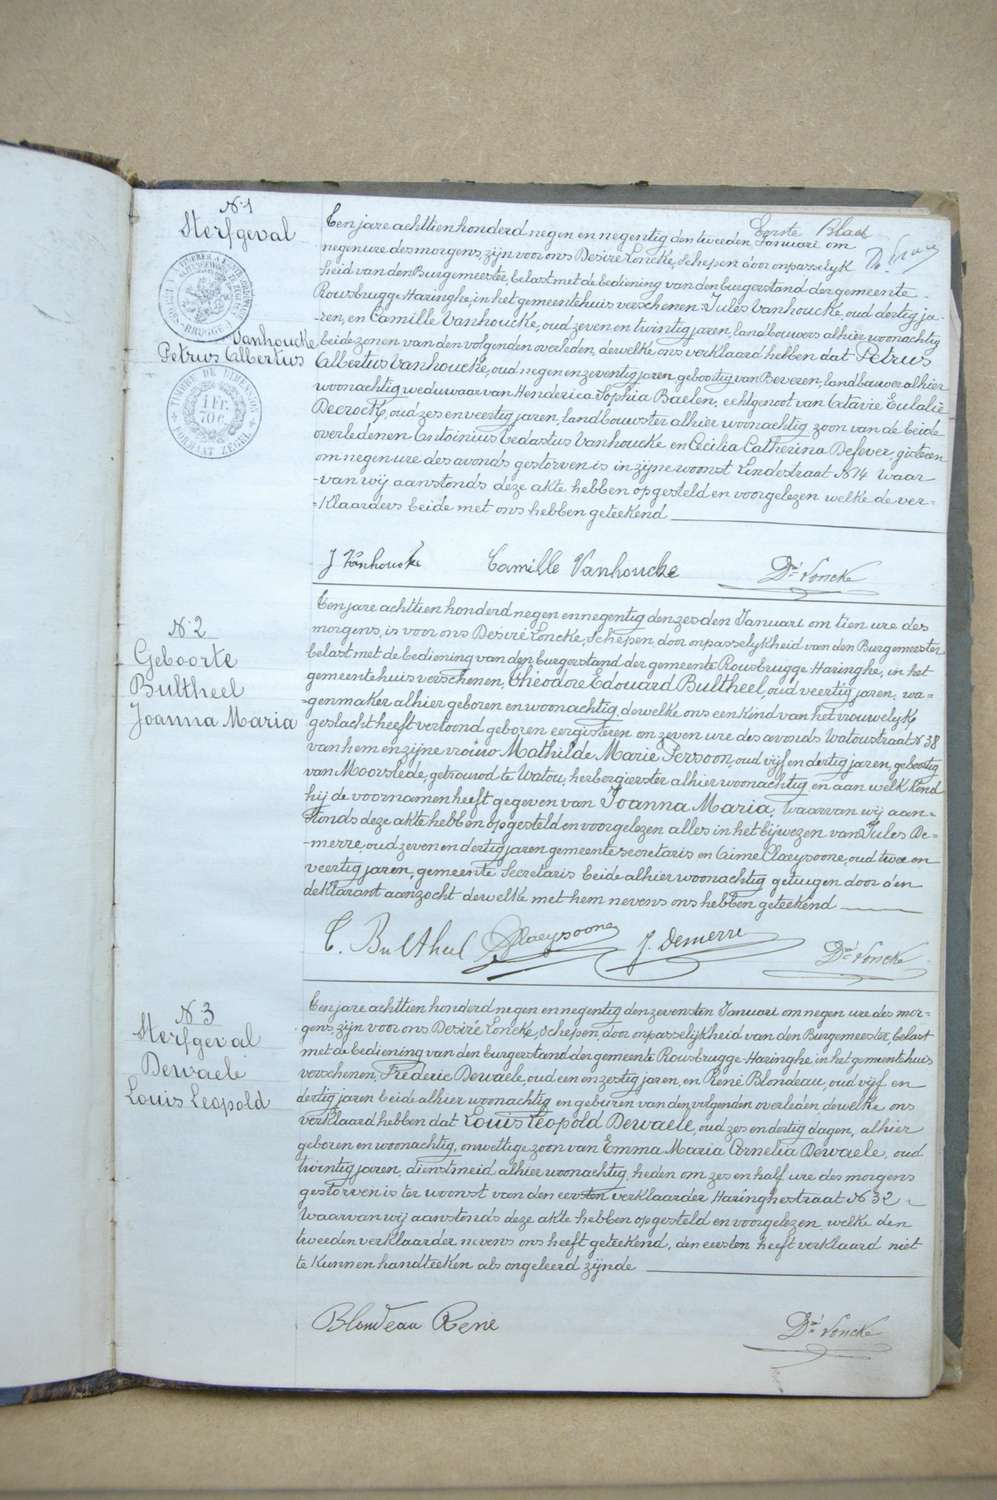 Eerste Blad
N. 1
Sterfgeval
Vanhoucke
Petrus Albertus
TIMBRE DE DIMENSION
1 FR. 70 C.
FORMAAT ZEGEL
Ten jare achttien honderd negen en negentig den tweeden Januari om
negen ure des morgens, zijn voor ons Désiré Loncke, Schepen door onpasselijk
heid van den Burgemeester, belast met de bediening van den burgerstand der gemeente
Rousbrugge Haringhe, in het gemeentehuis verschenen: Jules Vanhoucke, oud dertig ja-
-ren, en Camille Vanhoucke, oud zeven en twintig jaren, landbouwers alhier woonachtig
beide zonen van den volgenden overleden, dewelke ons verklaard hebben dat Petrus
Albertus Vanhoucke, oud negen en zeventig jaren, geboortig van Beveren, landbouwer alhier
woonachtig, weduwaar van Henderica Sophia Baelen, echtgenoot van Octavie Eulalie
Decrock, oud zes en veertig jaren, landbouwster alhier woonachtig zoon van de beide
overledenen Antoinius Vedastus Vanhoucke en Cecilia Catherina Defever, gisteren
om negen ure des avonds gestorven is in zijne woonst Lindestraat N 14 Waar
-van wij aanstonds deze akte hebben opgesteld en voorgelezen welke de ver-
-klaarders beide met ons hebben geteekend
J Vanhoucke Camille Vanhoucke Dré Loncke
N. 2
Geboorte
Bultheel
Joanna Maria
Ten jare achttien honderd negen en negentig den zesden Januari om tien ure des
morgens, is voor ons Désiré Loncke, Schepen, door onpasselijkheid van den Burgemeester
belast met de bediening van den burgerstand der gemeente Rousbrugge Haringhe, in het
gemeentehuis verschenen, Théodore Edouard Bultheel, oud veertig jaren, wa-
-genmaker alhier geboren en woonachtig, dewelke ons een kind van het vrouwelijk
geslacht heeft vertoond, geboren eergisteren om zeven ure des avonds Watoustraat N 38
van hem en zijne vrouw Mathilde Marie Persoon, oud vijf en dertig jaren, geboortig
van Moorslede, getrouwd te Watou, herbergierster alhier woonachtig en aan welk kind
hij de voornamen heeft gegeven van Joanna Maria, Waarvan wij aan-
stonds deze akte hebben opgesteld en voorgelezen alles in het bijwezen van Jules De-
-merre, oud zeven en dertig jaren gemeente secretaris en Aimé Claeysoone, oud twee en
veertig jaren, gemeente Secretaris beide alhier woonachtig getuigen door den
deklarant aanzocht dewelke met hem nevens ons hebben geteekend
T. Bultheel Claeysoone J. Demerre Dré Loncke
N. 3
Sterfgeval
Dewaele
Louis Leopold
Ten jare achttien honderd negen en negentig den zevensten Januari om negen ure des mor-
gens, zijn voor ons Désiré Loncke, Schepen, door onpasselijkheid van den Burgemeester, belast
met de bediening van den burgerstand der gemeente Rousbrugge-Haringhe in het gemeentehuis
verschenen, Fréderic Dewaele, oud een en zestig jaren, en René Blondeau, oud vijf en
dertig jaren beide alhier woonachtig en geburen van den volgenden overleden, dewelke ons
verklaard hebben dat Louis Leopold Dewaele, oud zes en dertig dagen, alhier
geboren en woonachtig, onwettige zoon van Emma Maria Cornelia Dewaele, oud
twintig jaren, dienstmeid alhier woonachtig, heden om zes en half ure des morgens
gestorven is ter woonst van den eersten verklaarder Haringhestraat N 32
Waarvan wij aanstonds deze akte hebben opgesteld en voorgelezen welke den
tweeden verklaarder nevens ons heeft geteekend, den eersten heeft verklaard niet
te kunnen handteeken als ongeleerd zijnde
Blondeau René Dré Loncke